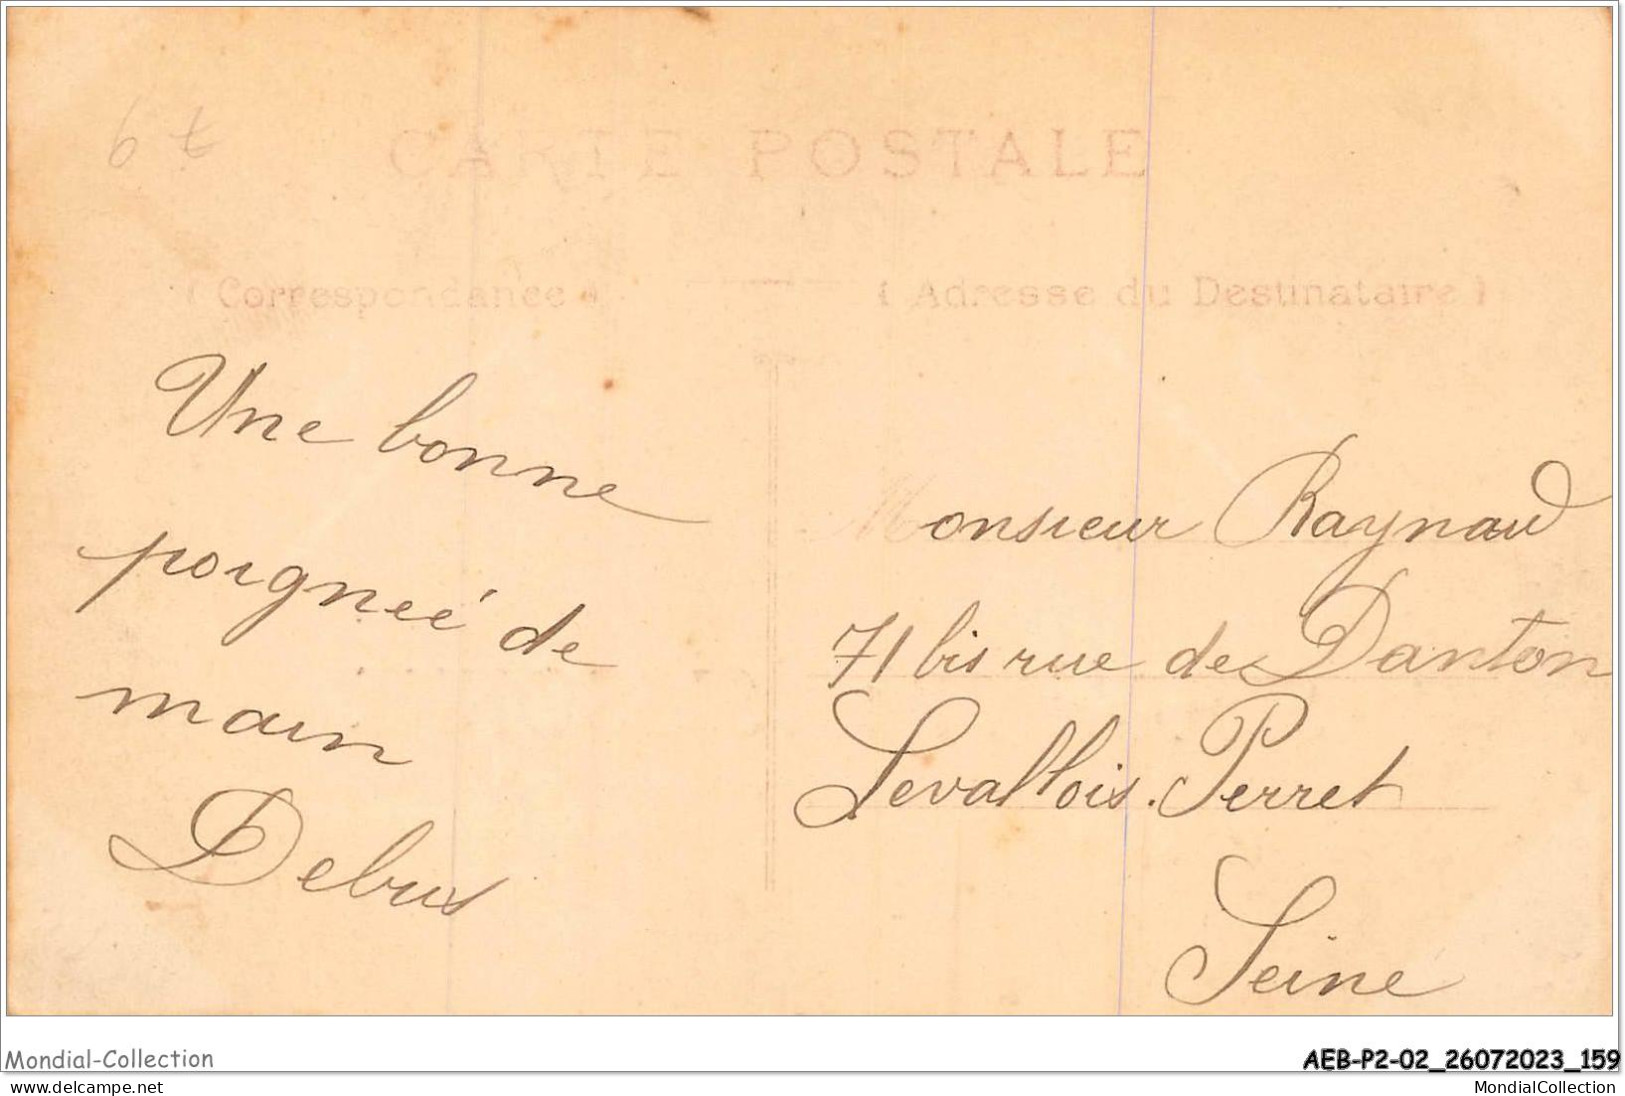 67
CARTE POSTALE
( Correspondance )
( Adresse du Destinataire )
Une bonne
poigneé de
main
Debus
Monsieur Raynaud
71 bis rue de Danton
Levallois. Perret
Seine
Mondial-Collection
AEB-P2-02_26072023_159
www.delcampe.net
MondialCollection